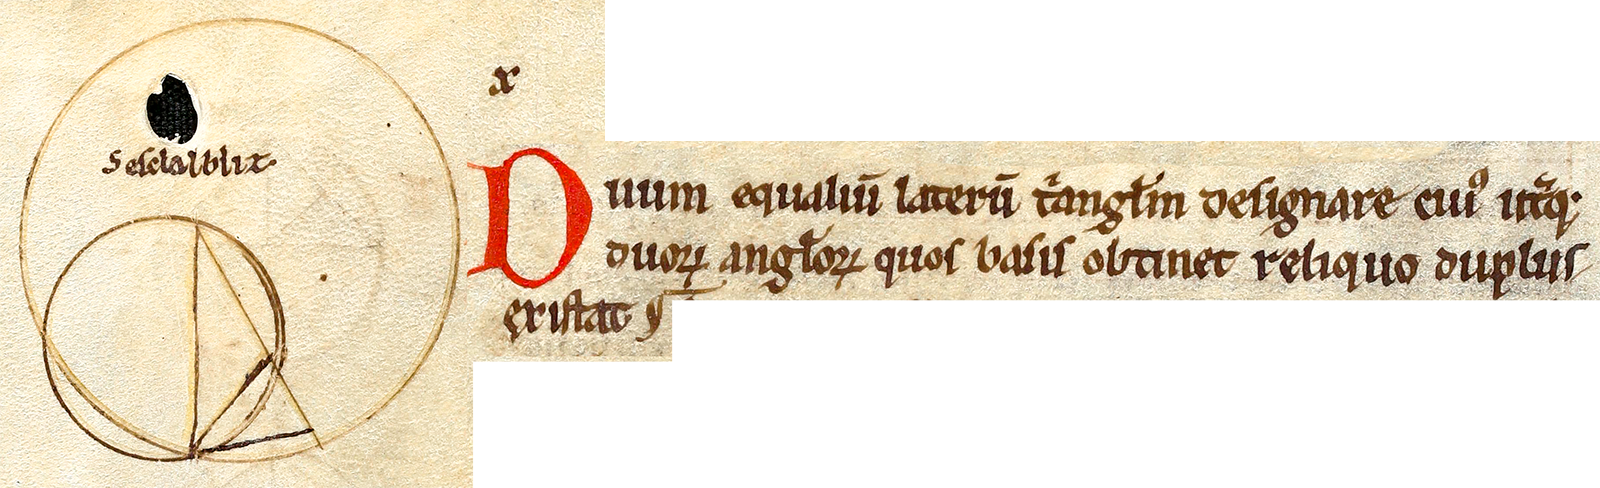 x
Duum equaliū laterū t̃angl̃m designare cuiꝰ utq̃
duoꝝ angl̃oꝝ quos basis obtinet reliquo duplus
existat